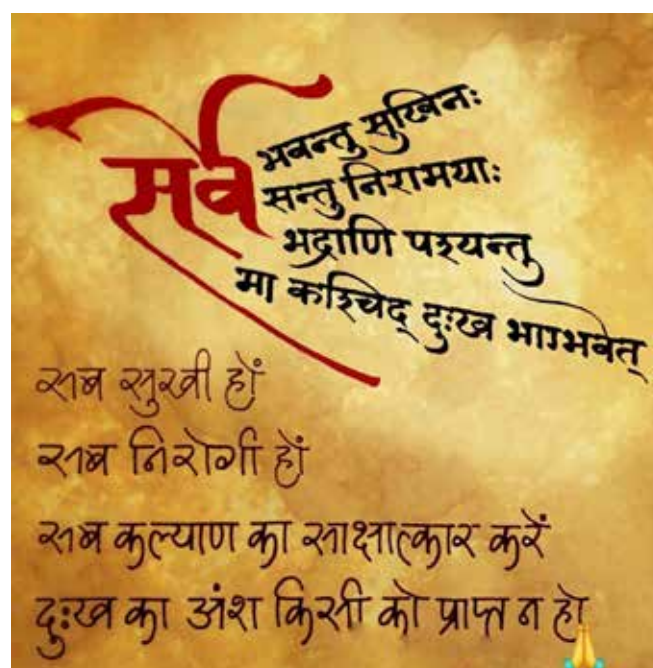 सर्वे
भवन्तु सुखिनः
सन्तु निरामयाः
भद्राणि पश्यन्तु
मा कश्चिद् दुःख भाग्भवेत्
सब सुखी हों
सब निरोगी हों
सब कल्याण का साक्षात्कार करें
दुःख का अंश किसी को प्राप्त न हो